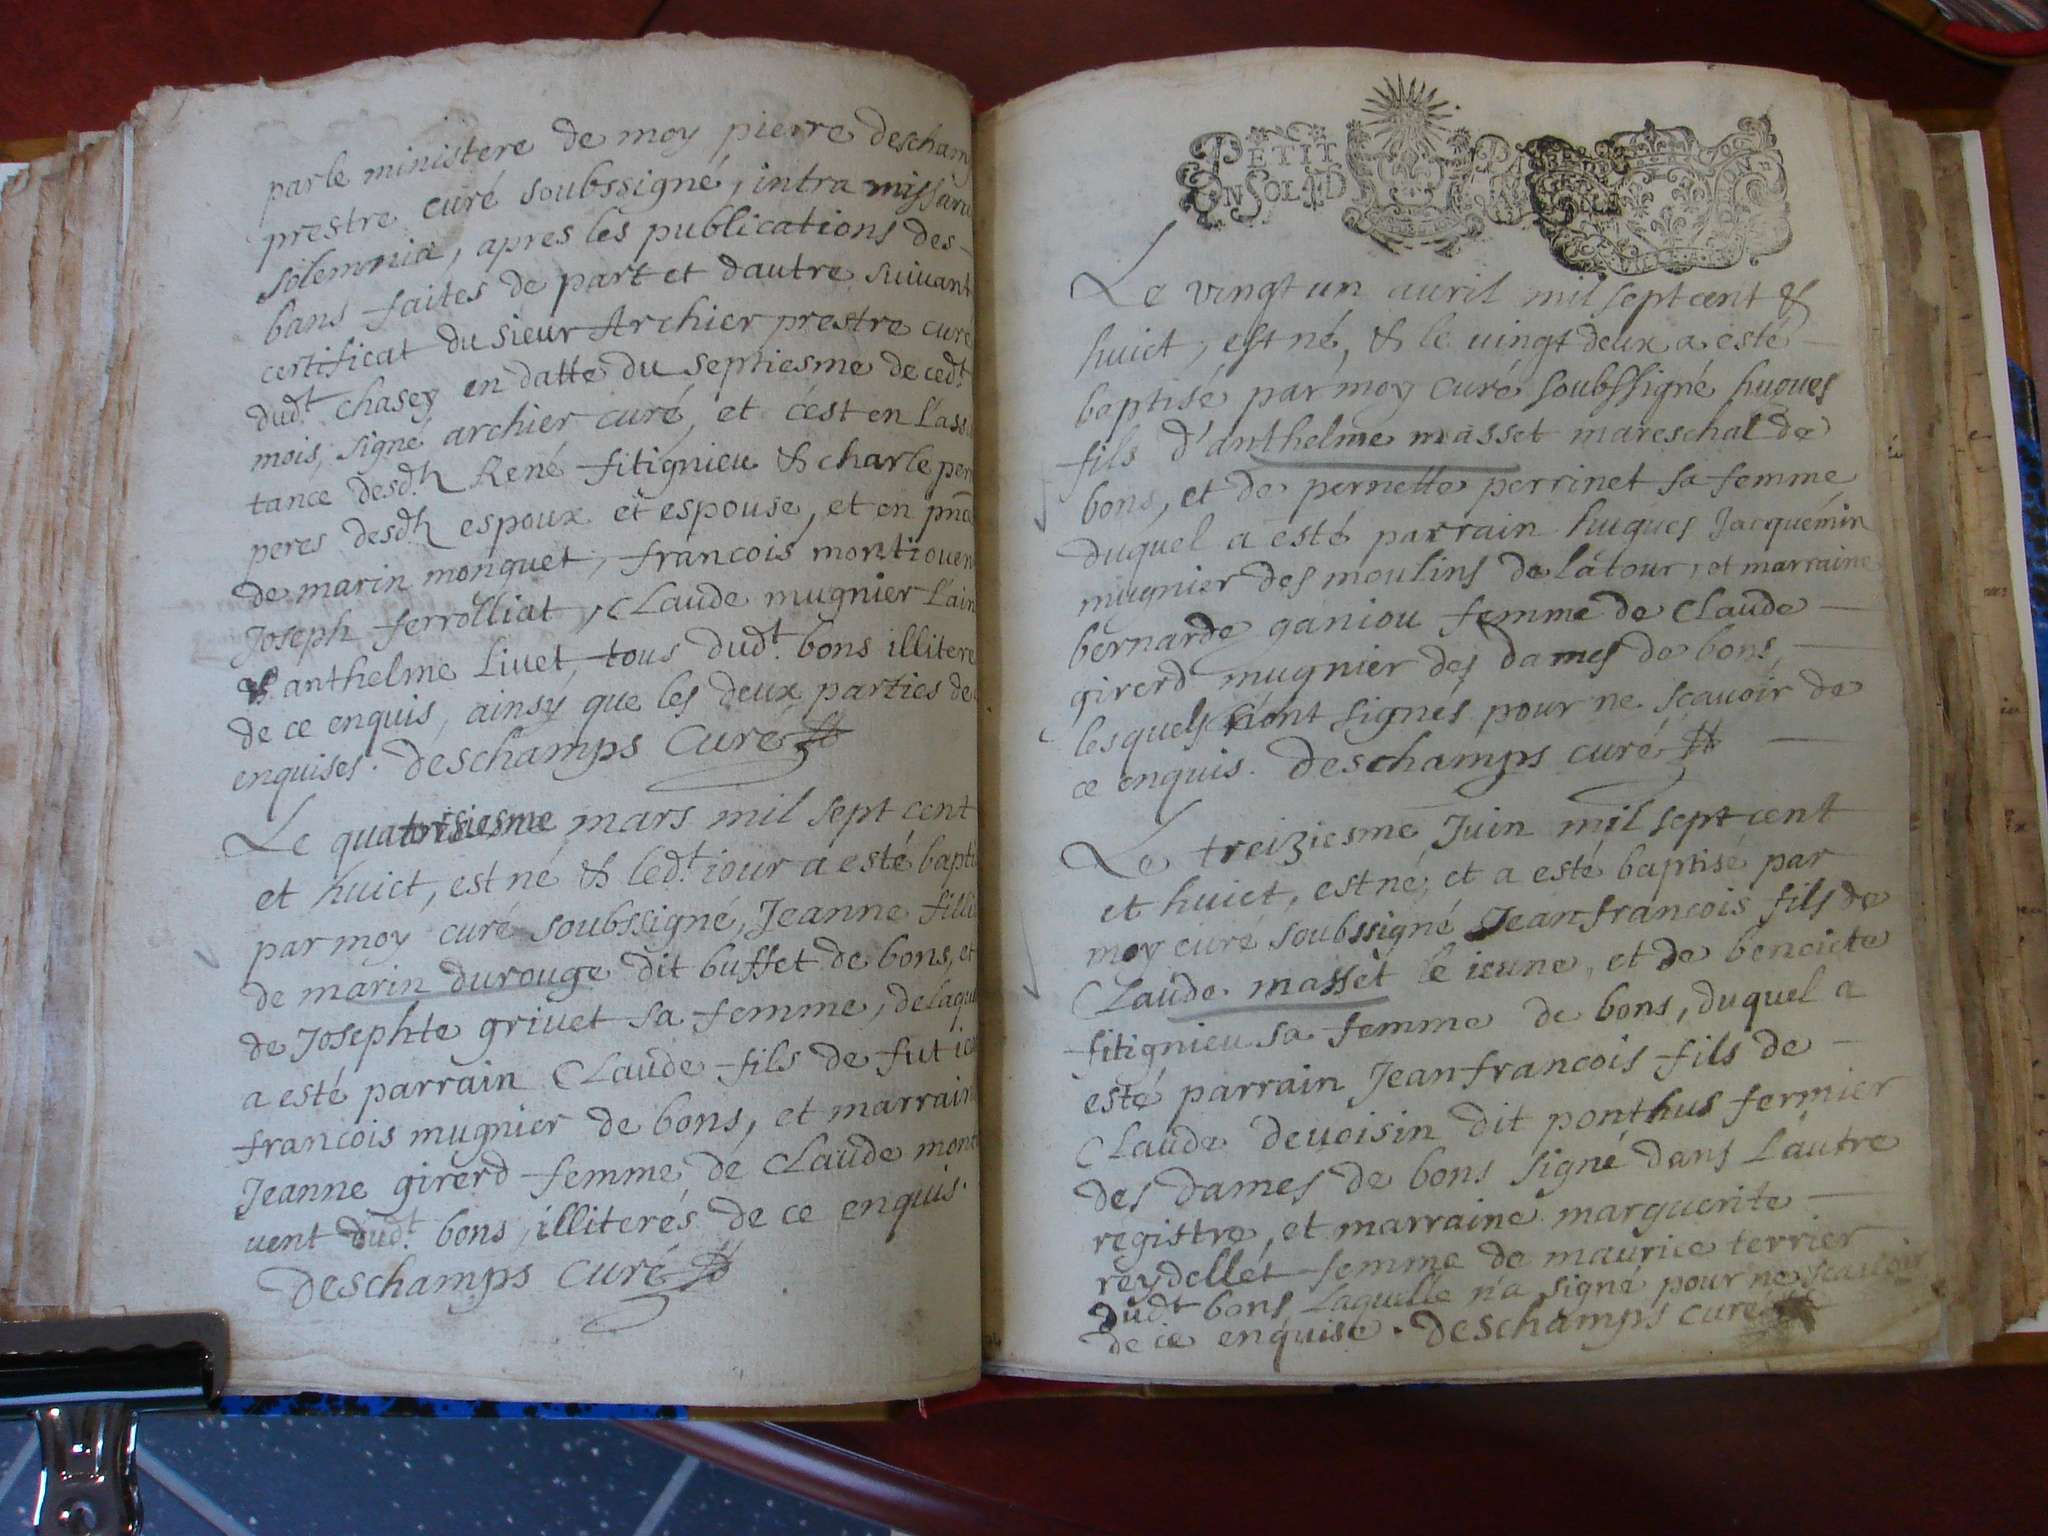 par le ministere de moy pierre descham
prestre curé soubssigné, intra missaru
solemnia, apres les publications des
bans faites de part et dautre suivant
certificat du sieur Archier prestre curé
dudt chasey en datte du septiesme de cedt
mois, signé archier curé, et c'est en l'assi
tance desdh René fitignieu & charle per
peres desdh espoux et espouse, et en pnce
de marin monquet, francois montiouen
Joseph ferrolliat, Claude mugnier l'ain
& anthelme Livet, tous dudt bons illitere
de ce enquis, ainsy que les deux parties de
enquises. Deschamps Curé
Le quatorsiesme mars mil sept cent
et huict, est né & ledt iour a esté bapti
par moy curé soubssigné, Jeanne fille
de marin durouge dit buffet de bons, et
de Josephte grivet sa femme, delaque
a esté parrain Claude fils de fut
francois mugnier de bons, et marrain
Jeanne girerd femme de Claude mont
uent dudt bons, illiterés de ce enquis.
Deschamps curé
PETIT PA
ON SOL I D
Le vingt un avril mil sept cent &
huict, est né, & le vingt deux a esté
baptisé par moy curé soubssigné hugues
fils d'anthelme masset mareschal de
bons, et de pernette perrinet sa femme
duquel a esté parrain hugues Jacquémin
mugnier des moulins de la tour, et marraine
bernarde ganiou femme de Claude
girerd mugnier des dames de bons,
lesquels n'ont signés pour ne scavoir de
ce enquis. Deschamps curé
Le treiziesme Juin mil sept cent
et huict, est né, et a esté baptisé par
moy curé soubssigné Jean francois fils de
Claude masset le ieune, et de benoicte
fitignieu sa femme de bons, duquel a
esté parrain Jean francois fils de
Claude devoisin dit ponthus fermier
des dames de bons signé dans l'autre
registre, et marraine marguerite
reydellet femme de maurice terrier
dudt bons laquelle n'a signé pour ne scavoir
de ce enquise. Deschamps curé